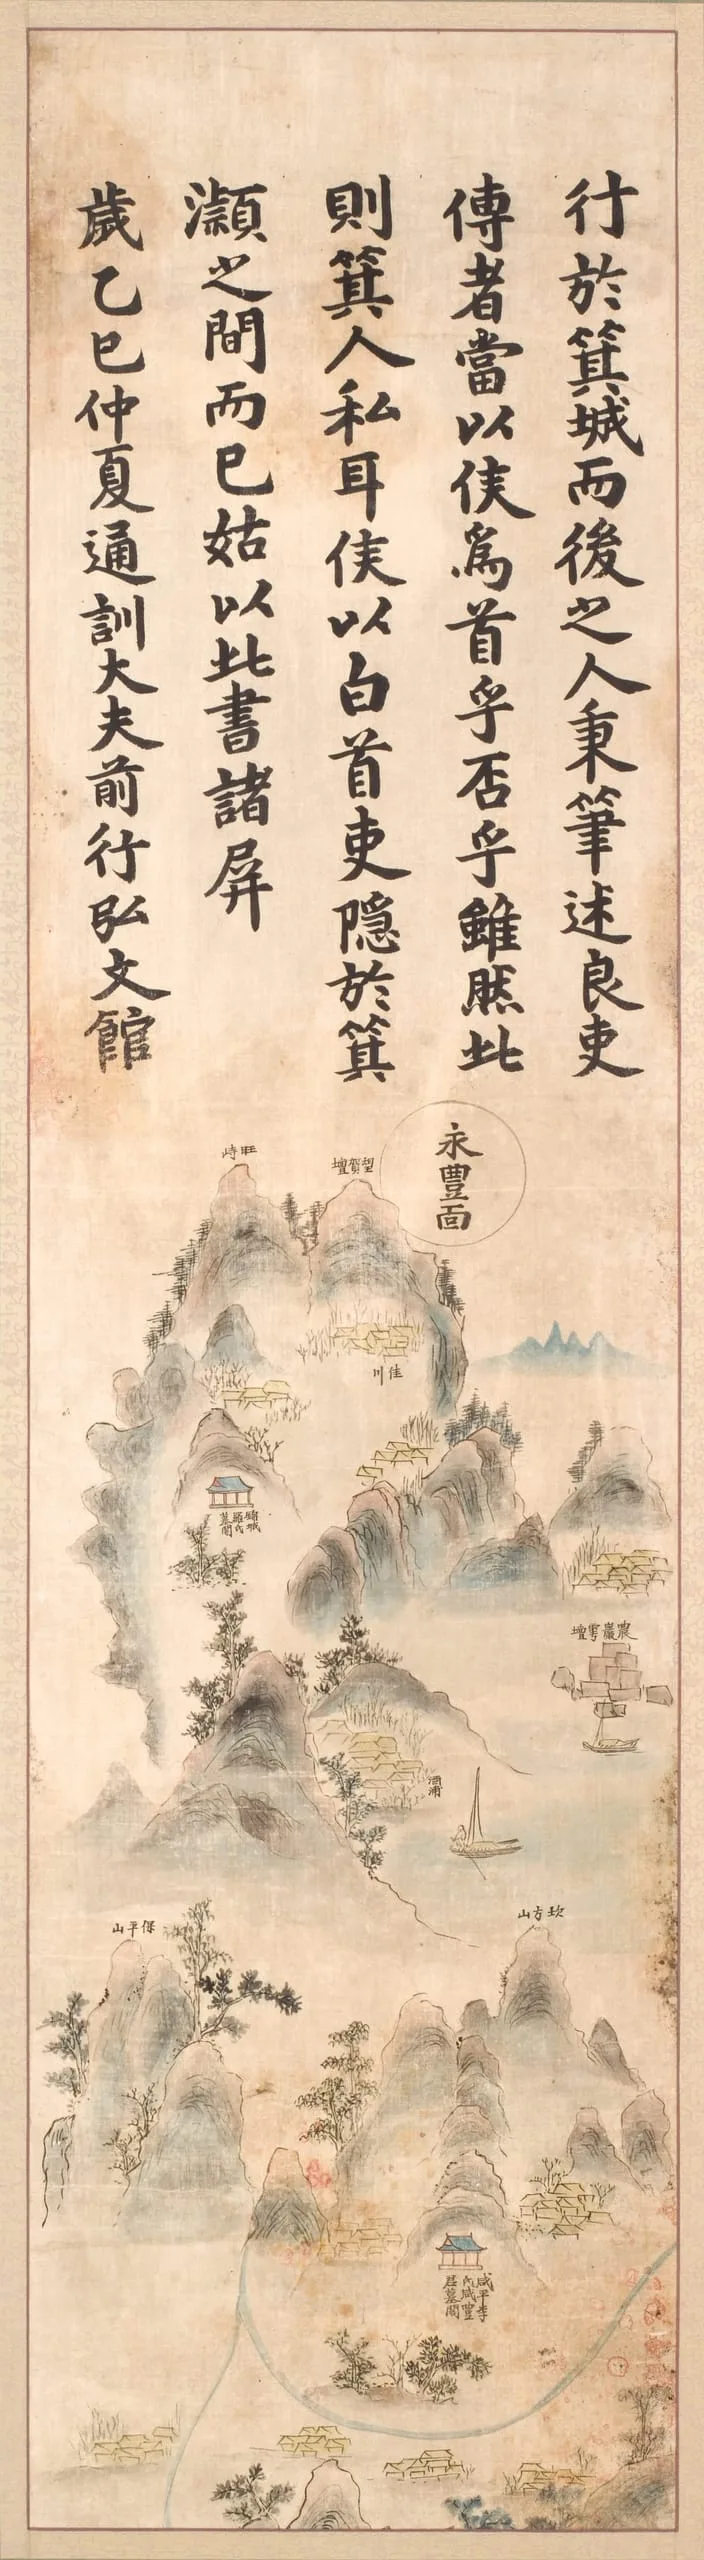 行於箕城而後之人秉筆述良吏
傳者當以侯爲首乎否乎雖然此
則箕人私耳侯以白首吏隱於箕
灝之間而已姑以此書諸屛
歲乙巳仲夏通訓大夫前行弘文館
永豊面
旺峙
望賀壇
佳川
錦城
羅氏
墓閣
農巖雩壇
酒浦
保平山
坎方山
咸平李
氏咸豐
君墓閣